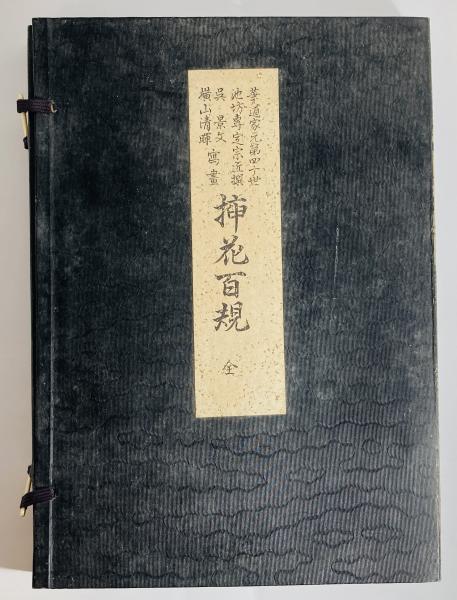 華道家元第四十世
池坊專定宗匠撰
呉 景文
横山清暉 寫畫
挿花百規
全